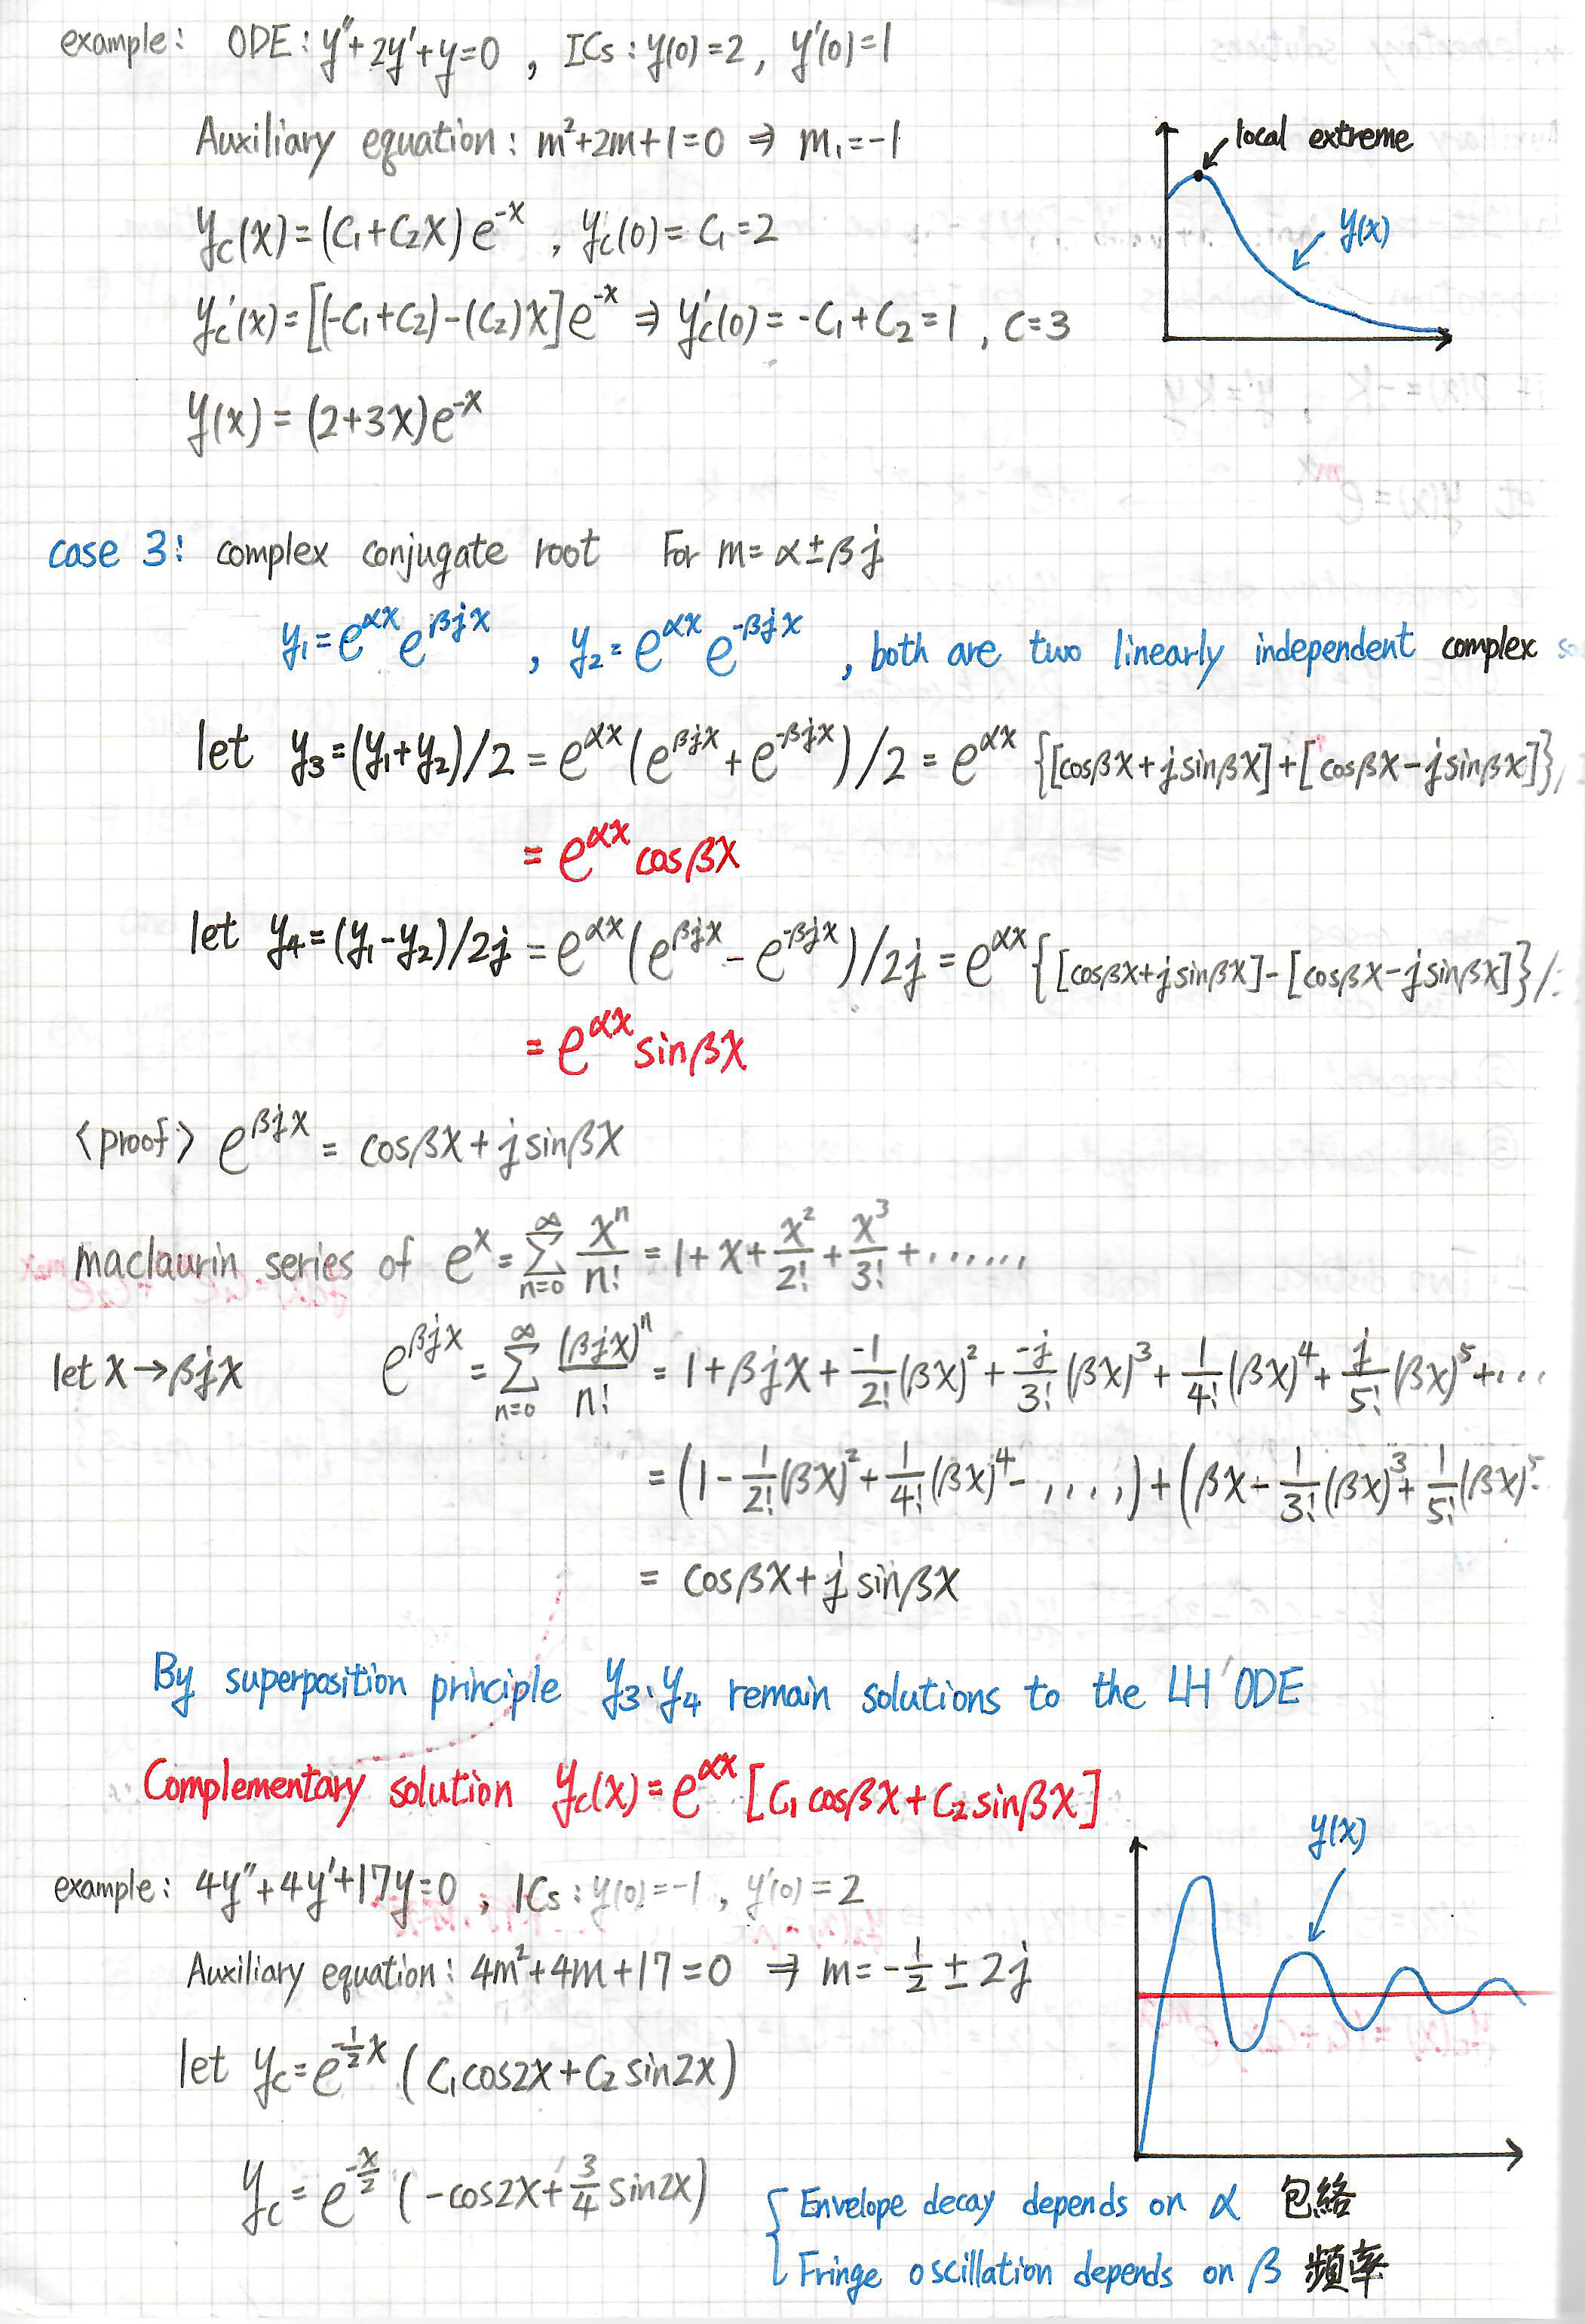 example: ODE: y''+2y'+y=0 , ICs: y(0)=2, y'(0)=1
Auxiliary equation: m²+2m+1=0 ⇒ m₁=-1
local extreme
y(x)
y_c(x)=(C₁+C₂x)e^{-x} , y_c(0)=C₁=2
y_c'(x)=[(-C₁+C₂)-(C₂)x]e^{-x} ⇒ y_c'(0)=-C₁+C₂=1 , C=3
y(x)=(2+3x)e^{-x}
case 3: complex conjugate root For m=α±βj
y₁=e^{αx}e^{βjx} , y₂=e^{αx}e^{-βjx} , both are two linearly independent complex
let y₃=(y₁+y₂)/2=e^{αx}(e^{βjx}+e^{-βjx})/2=e^{αx}{[cosβx+jsinβx]+[cosβx-jsinβx]}/
=e^{αx}cosβx
let y₄=(y₁-y₂)/2j=e^{αx}(e^{βjx}-e^{-βjx})/2j=e^{αx}{[cosβx+jsinβx]-[cosβx-jsinβx]}/
=e^{αx}sinβx
<proof> e^{βjx}=cosβx+jsinβx
maclaurin series of e^x=∑_{n=0}^{∞} x^n/n! =1+x+x²/2!+x³/3!+......
let x→βjx e^{βjx}=∑_{n=0}^{∞} (βjx)^n/n! =1+βjx+-1/2!(βx)²+-j/3!(βx)³+1/4!(βx)⁴+j/5!(βx)⁵+...
=(1-1/2!(βx)²+1/4!(βx)⁴-....)+(βx-1/3!(βx)³+1/5!(βx)⁵-
=cosβx+jsinβx
By superposition principle y₃、y₄ remain solutions to the LH ODE
Complementary solution y_c(x)=e^{αx}[C₁cosβx+C₂sinβx]
y(x)
example: 4y''+4y'+17y=0 , ICs: y(0)=-1, y'(0)=2
Auxiliary equation: 4m²+4m+17=0 ⇒ m=-1/2±2j
let y_c=e^{-1/2x}(C₁cos2x+C₂sin2x)
y_c=e^{-x/2}(-cos2x+3/4sin2x)
Envelope decay depends on α 包絡
Fringe oscillation depends on β 頻率